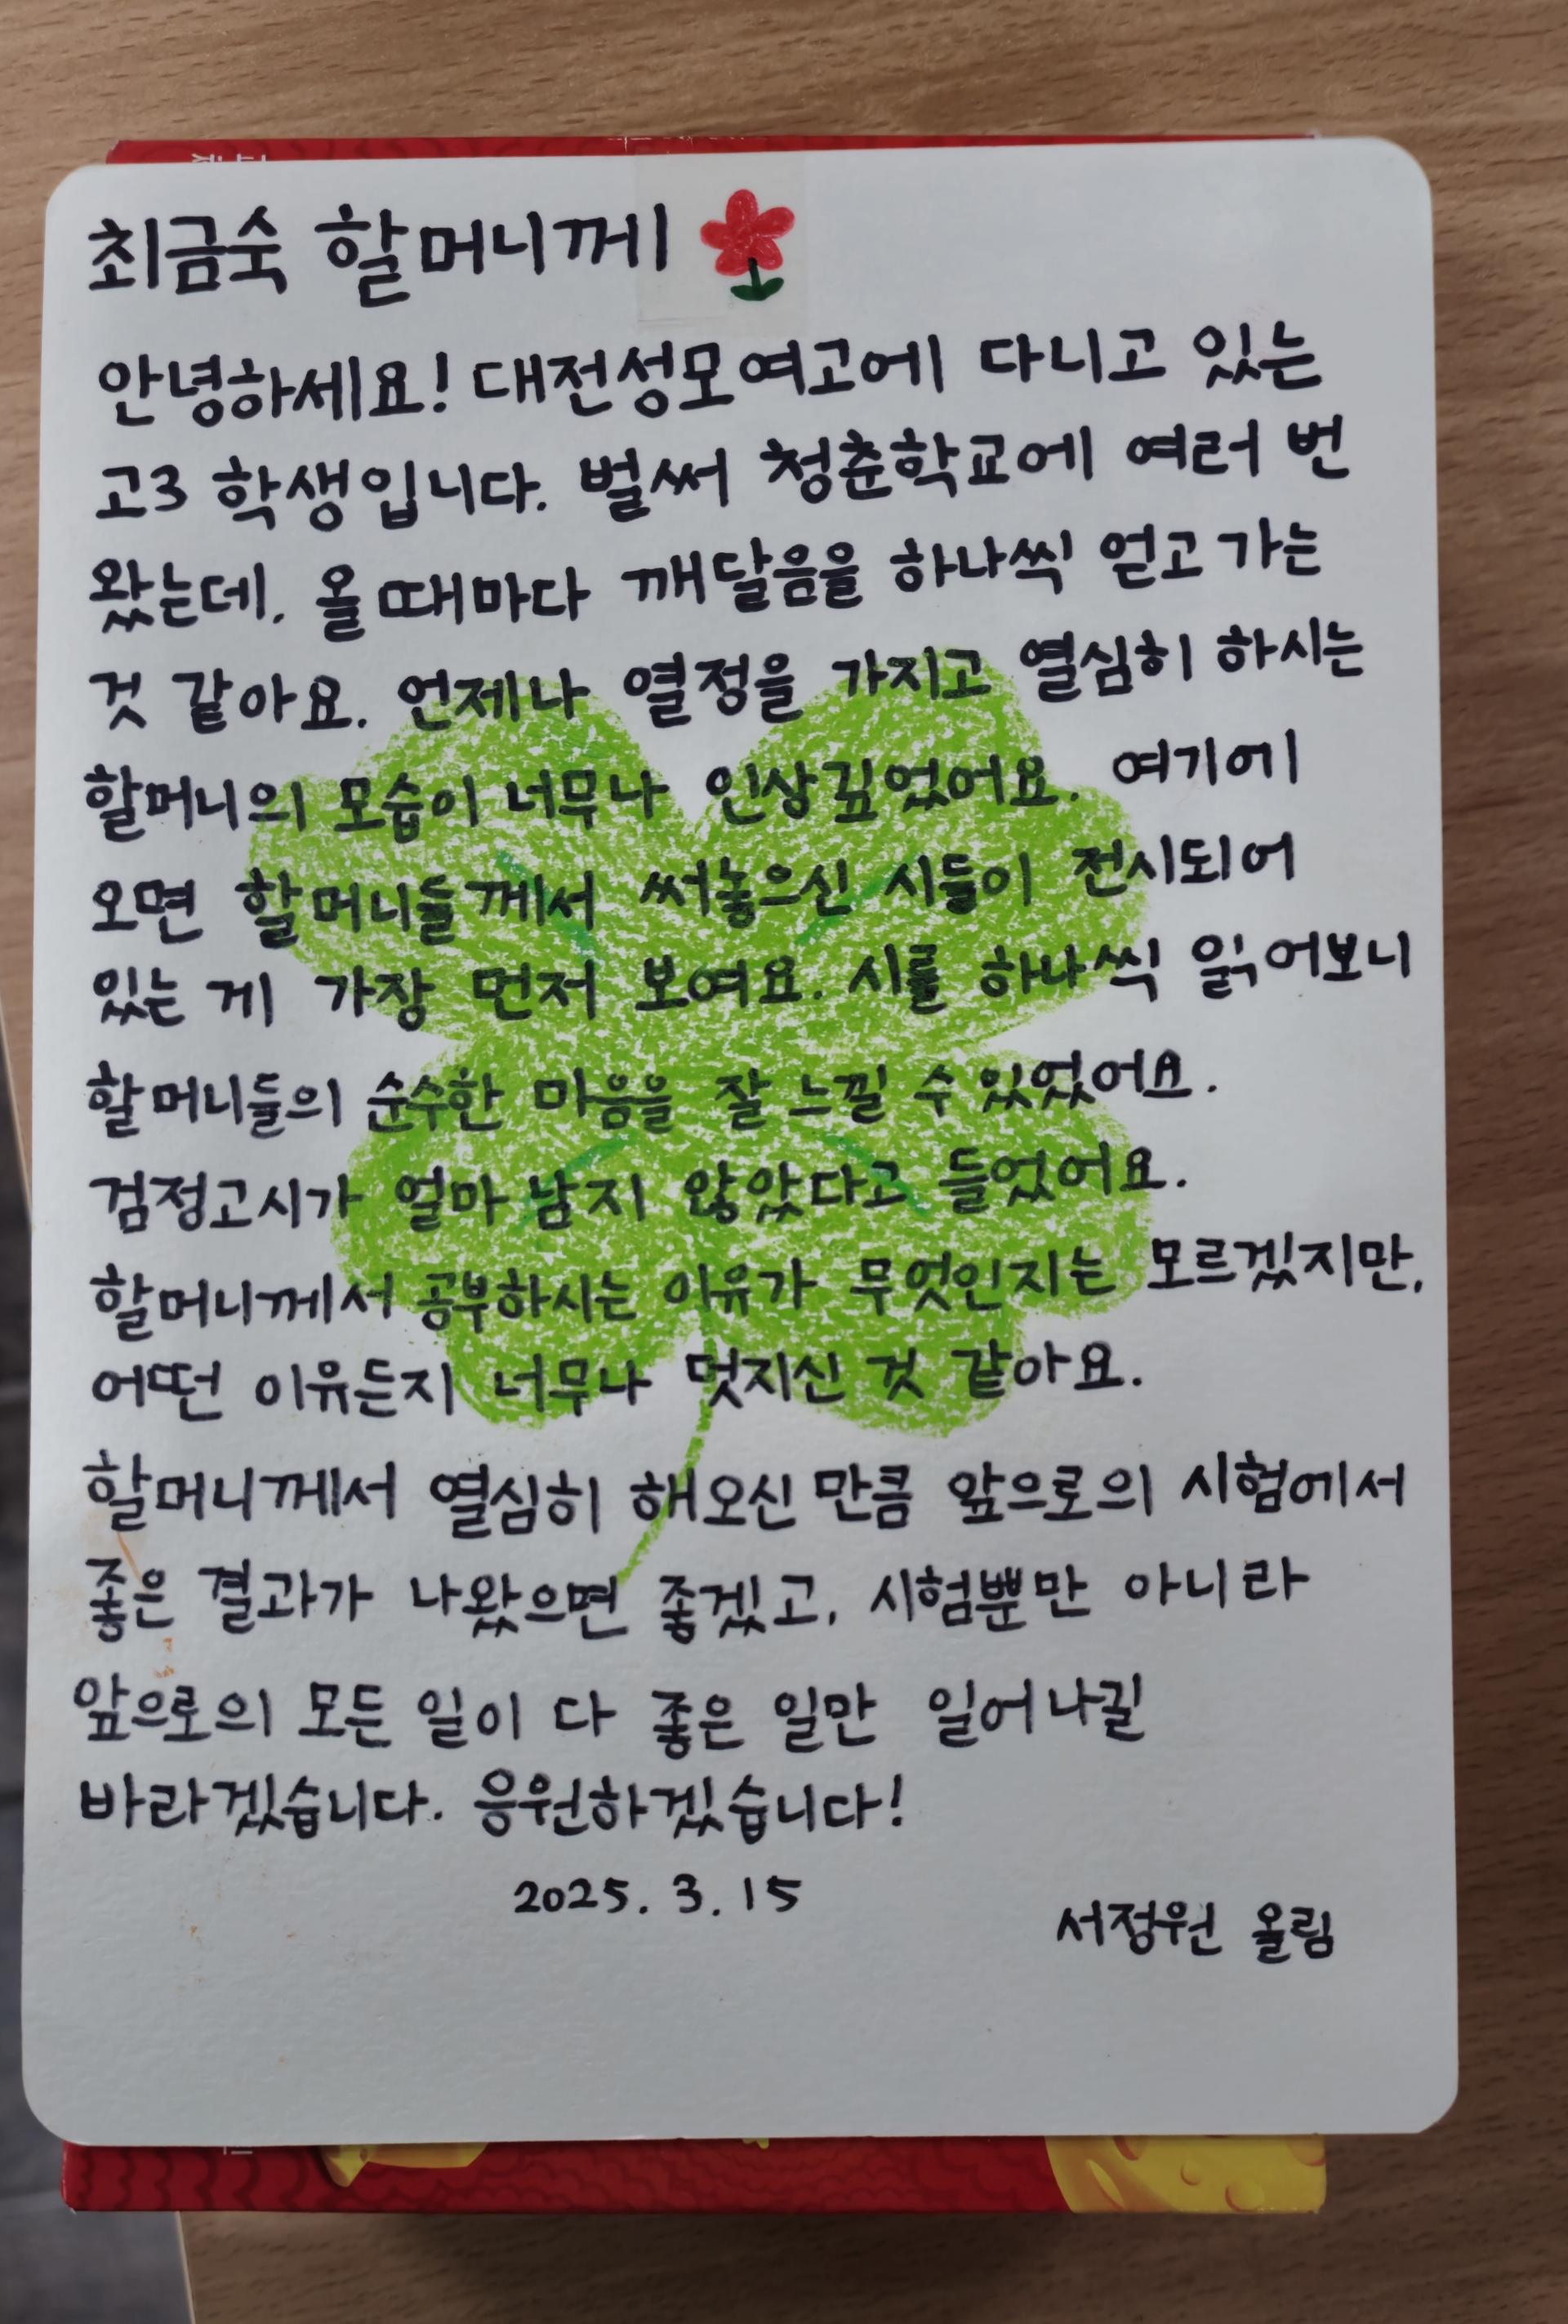 최금숙 할머니께
안녕하세요! 대전성모여고에 다니고 있는
고3 학생입니다. 벌써 청춘학교에 여러 번
왔는데, 올 때마다 깨달음을 하나씩 얻고 가는
것 같아요. 언제나 열정을 가지고 열심히 하시는
할머니의 모습이 너무나 인상깊었어요. 여기에
오면 할머니들께서 써놓으신 시들이 전시되어
있는 게 가장 먼저 보여요. 시를 하나씩 읽어보니
할머니들의 순수한 마음을 잘 느낄 수 있었어요.
검정고시가 얼마 남지 않았다고 들었어요.
할머니께서 공부하시는 이유가 무엇인지는 모르겠지만,
어떤 이유든지 너무나 멋지신 것 같아요.
할머니께서 열심히 해오신 만큼 앞으로의 시험에서
좋은 결과가 나왔으면 좋겠고, 시험뿐만 아니라
앞으로의 모든 일이 다 좋은 일만 일어나길
바라겠습니다. 응원하겠습니다!
2025. 3. 15
서정원 올림